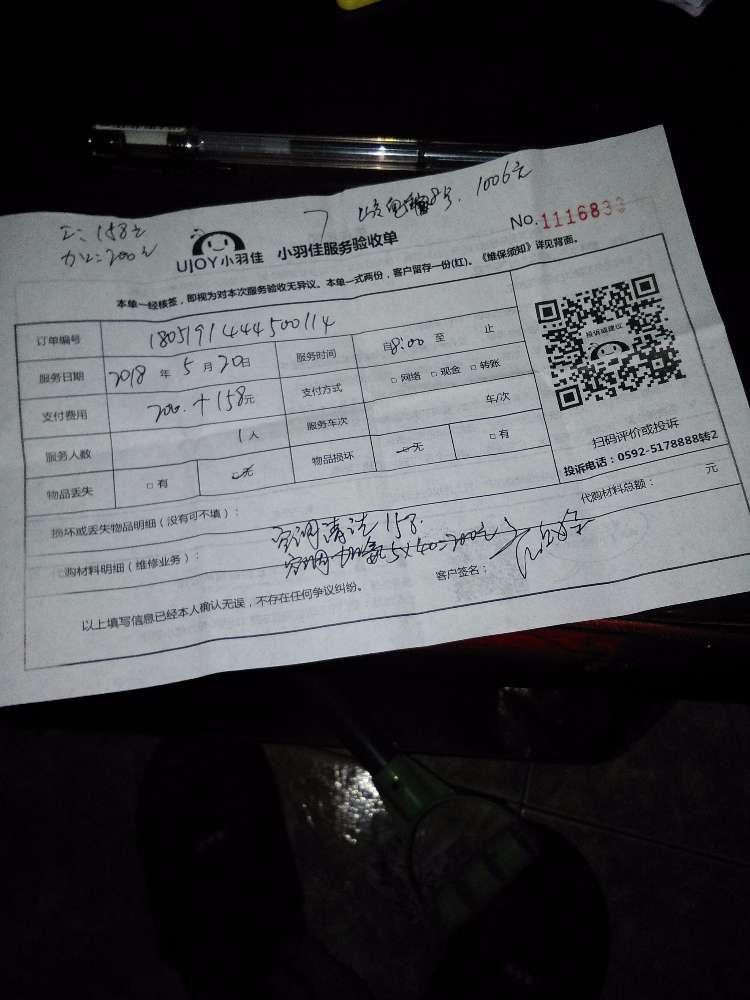 工：158元
加工：200元
8号. 1006元
UJOY小羽佳 小羽佳服务验收单
No.1116833
本单一经核签，即视为对本次服务验收无异议。本单一式两份，客户留存一份(红)。《维保须知》详见背面。
订单编号 1805191444500114
服务日期 2018 年 5 月 20 日 服务时间 自 8:00 至 止
支付费用 200.+158元 支付方式 □ 网络 □ 现金 □ 转账
服务人数 1 人 服务车次 车/次
物品丢失 □ 有 □ 无 物品损坏 □ 无 □ 有
投诉或建议
扫码评价或投诉
投诉电话：0592-5178888转2
损坏或丢失物品明细（没有可不填）：
代购材料总额： 元
购材料明细（维修业务）：
空调清洁158.
空调加氟5×40=200元
客户签名：
以上填写信息已经本人确认无误，不存在任何争议纠纷。